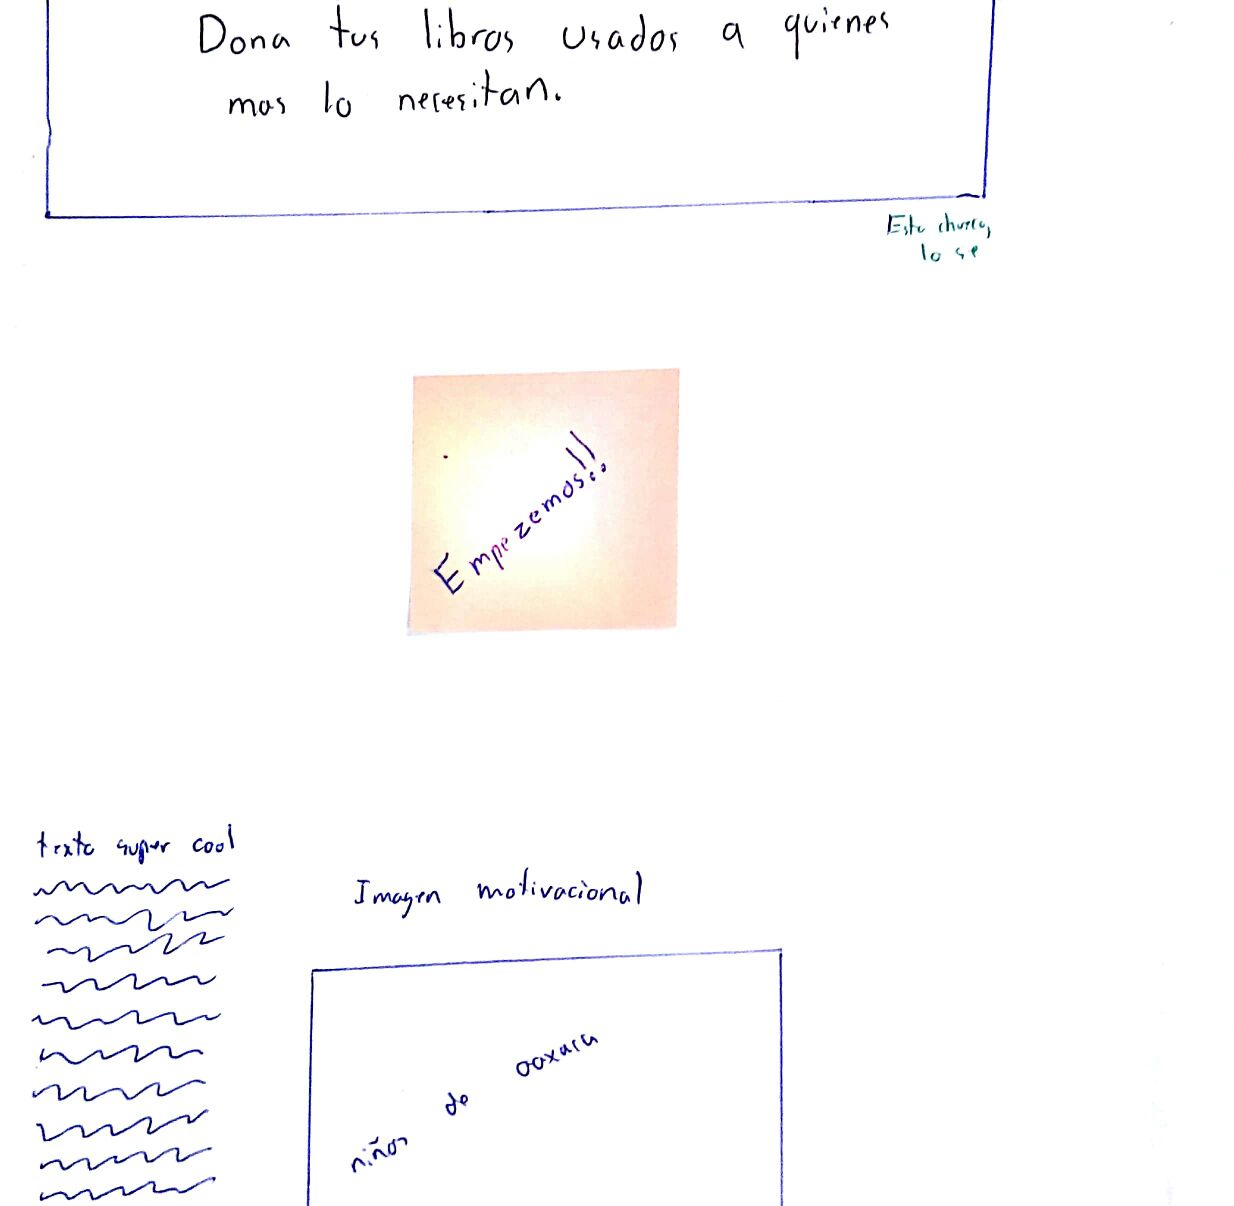 Dona tus libros usados a quienes
mas lo necesitan.
Esta chueco,
lo se
Empezemos!!
texto super cool
Imagen motivacional
niños de oaxaca